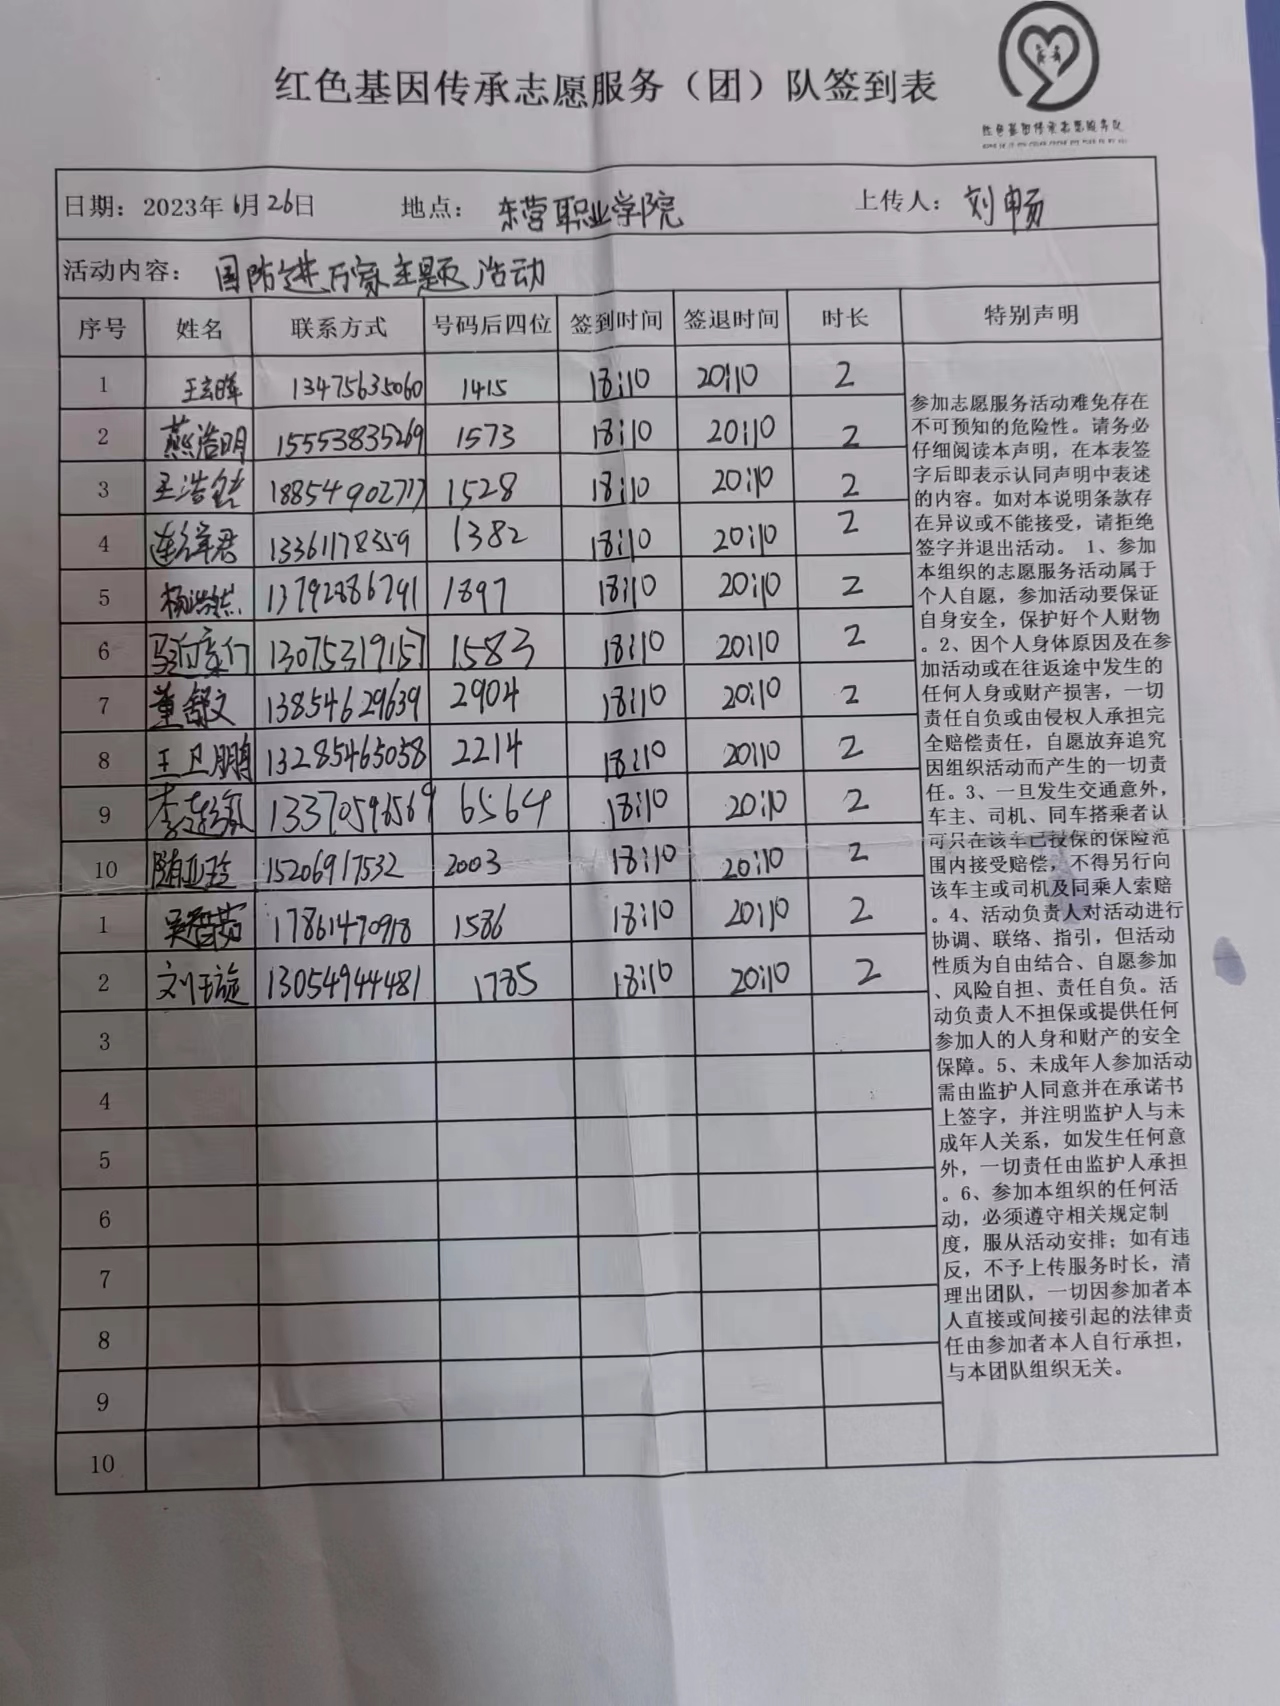 红色基因传承志愿服务（团）队签到表
红色基因传承志愿服务队
日期：2023年6月26日 地点：东营职业学院 上传人：刘畅
活动内容：国防进万家主题活动
序号 姓名 联系方式 号码后四位 签到时间 签退时间 时长 特别声明
1 王玄晔 13475635060 1415 18:10 20:10 2
2 燕浩明 15553835269 1573 18:10 20:10 2
3 王浩 18854902717 1528 18:10 20:10 2
4 13361178359 1382 18:10 20:10 2
5 杨浩然 13792886791 1897 18:10 20:10 2
6 13075319157 1583 18:10 20:10 2
7 董舒文 13854629639 2904 18:10 20:10 2
8 王卫鹏 13285465058 2214 18:10 20:10 2
9 13370596569 6564 18:10 20:10 2
10 随亚玲 15206917532 2003 18:10 20:10 2
1 吴智茹 17861470918 1586 18:10 20:10 2
2 刘玉旋 13054944481 1785 18:10 20:10 2
3
4
5
6
7
8
9
10
参加志愿服务活动难免存在
不可预知的危险性。请务必
仔细阅读本声明，在本表签
字后即表示认同声明中表述
的内容。如对本说明条款存
在异议或不能接受，请拒绝
签字并退出活动。 1、参加
本组织的志愿服务活动属于
个人自愿，参加活动要保证
自身安全，保护好个人财物
。2、因个人身体原因及在参
加活动或在往返途中发生的
任何人身或财产损害，一切
责任自负或由侵权人承担完
全赔偿责任，自愿放弃追究
因组织活动而产生的一切责
任。3、一旦发生交通意外，
车主、司机、同车搭乘者认
可只在该车已投保的保险范
围内接受赔偿，不得另行向
该车主或司机及同乘人索赔
。4、活动负责人对活动进行
协调、联络、指引，但活动
性质为自由结合、自愿参加
、风险自担、责任自负。活
动负责人不担保或提供任何
参加人的人身和财产的安全
保障。5、未成年人参加活动
需由监护人同意并在承诺书
上签字，并注明监护人与未
成年人关系，如发生任何意
外，一切责任由监护人承担
。6、参加本组织的任何活
动，必须遵守相关规定制
度，服从活动安排；如有违
反，不予上传服务时长，清
理出团队，一切因参加者本
人直接或间接引起的法律责
任由参加者本人自行承担，
与本团队组织无关。